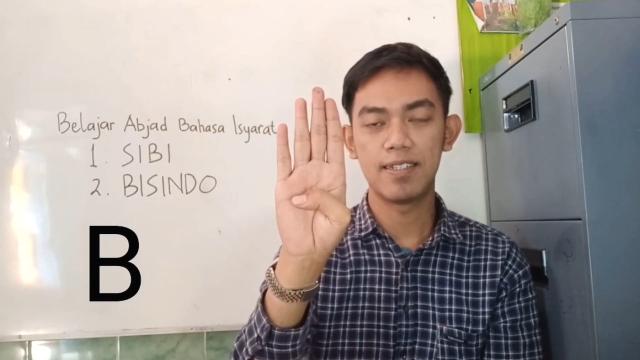 Belajar Abjad Bahasa Isyarat
1. SIBI
2. BISINDO
B